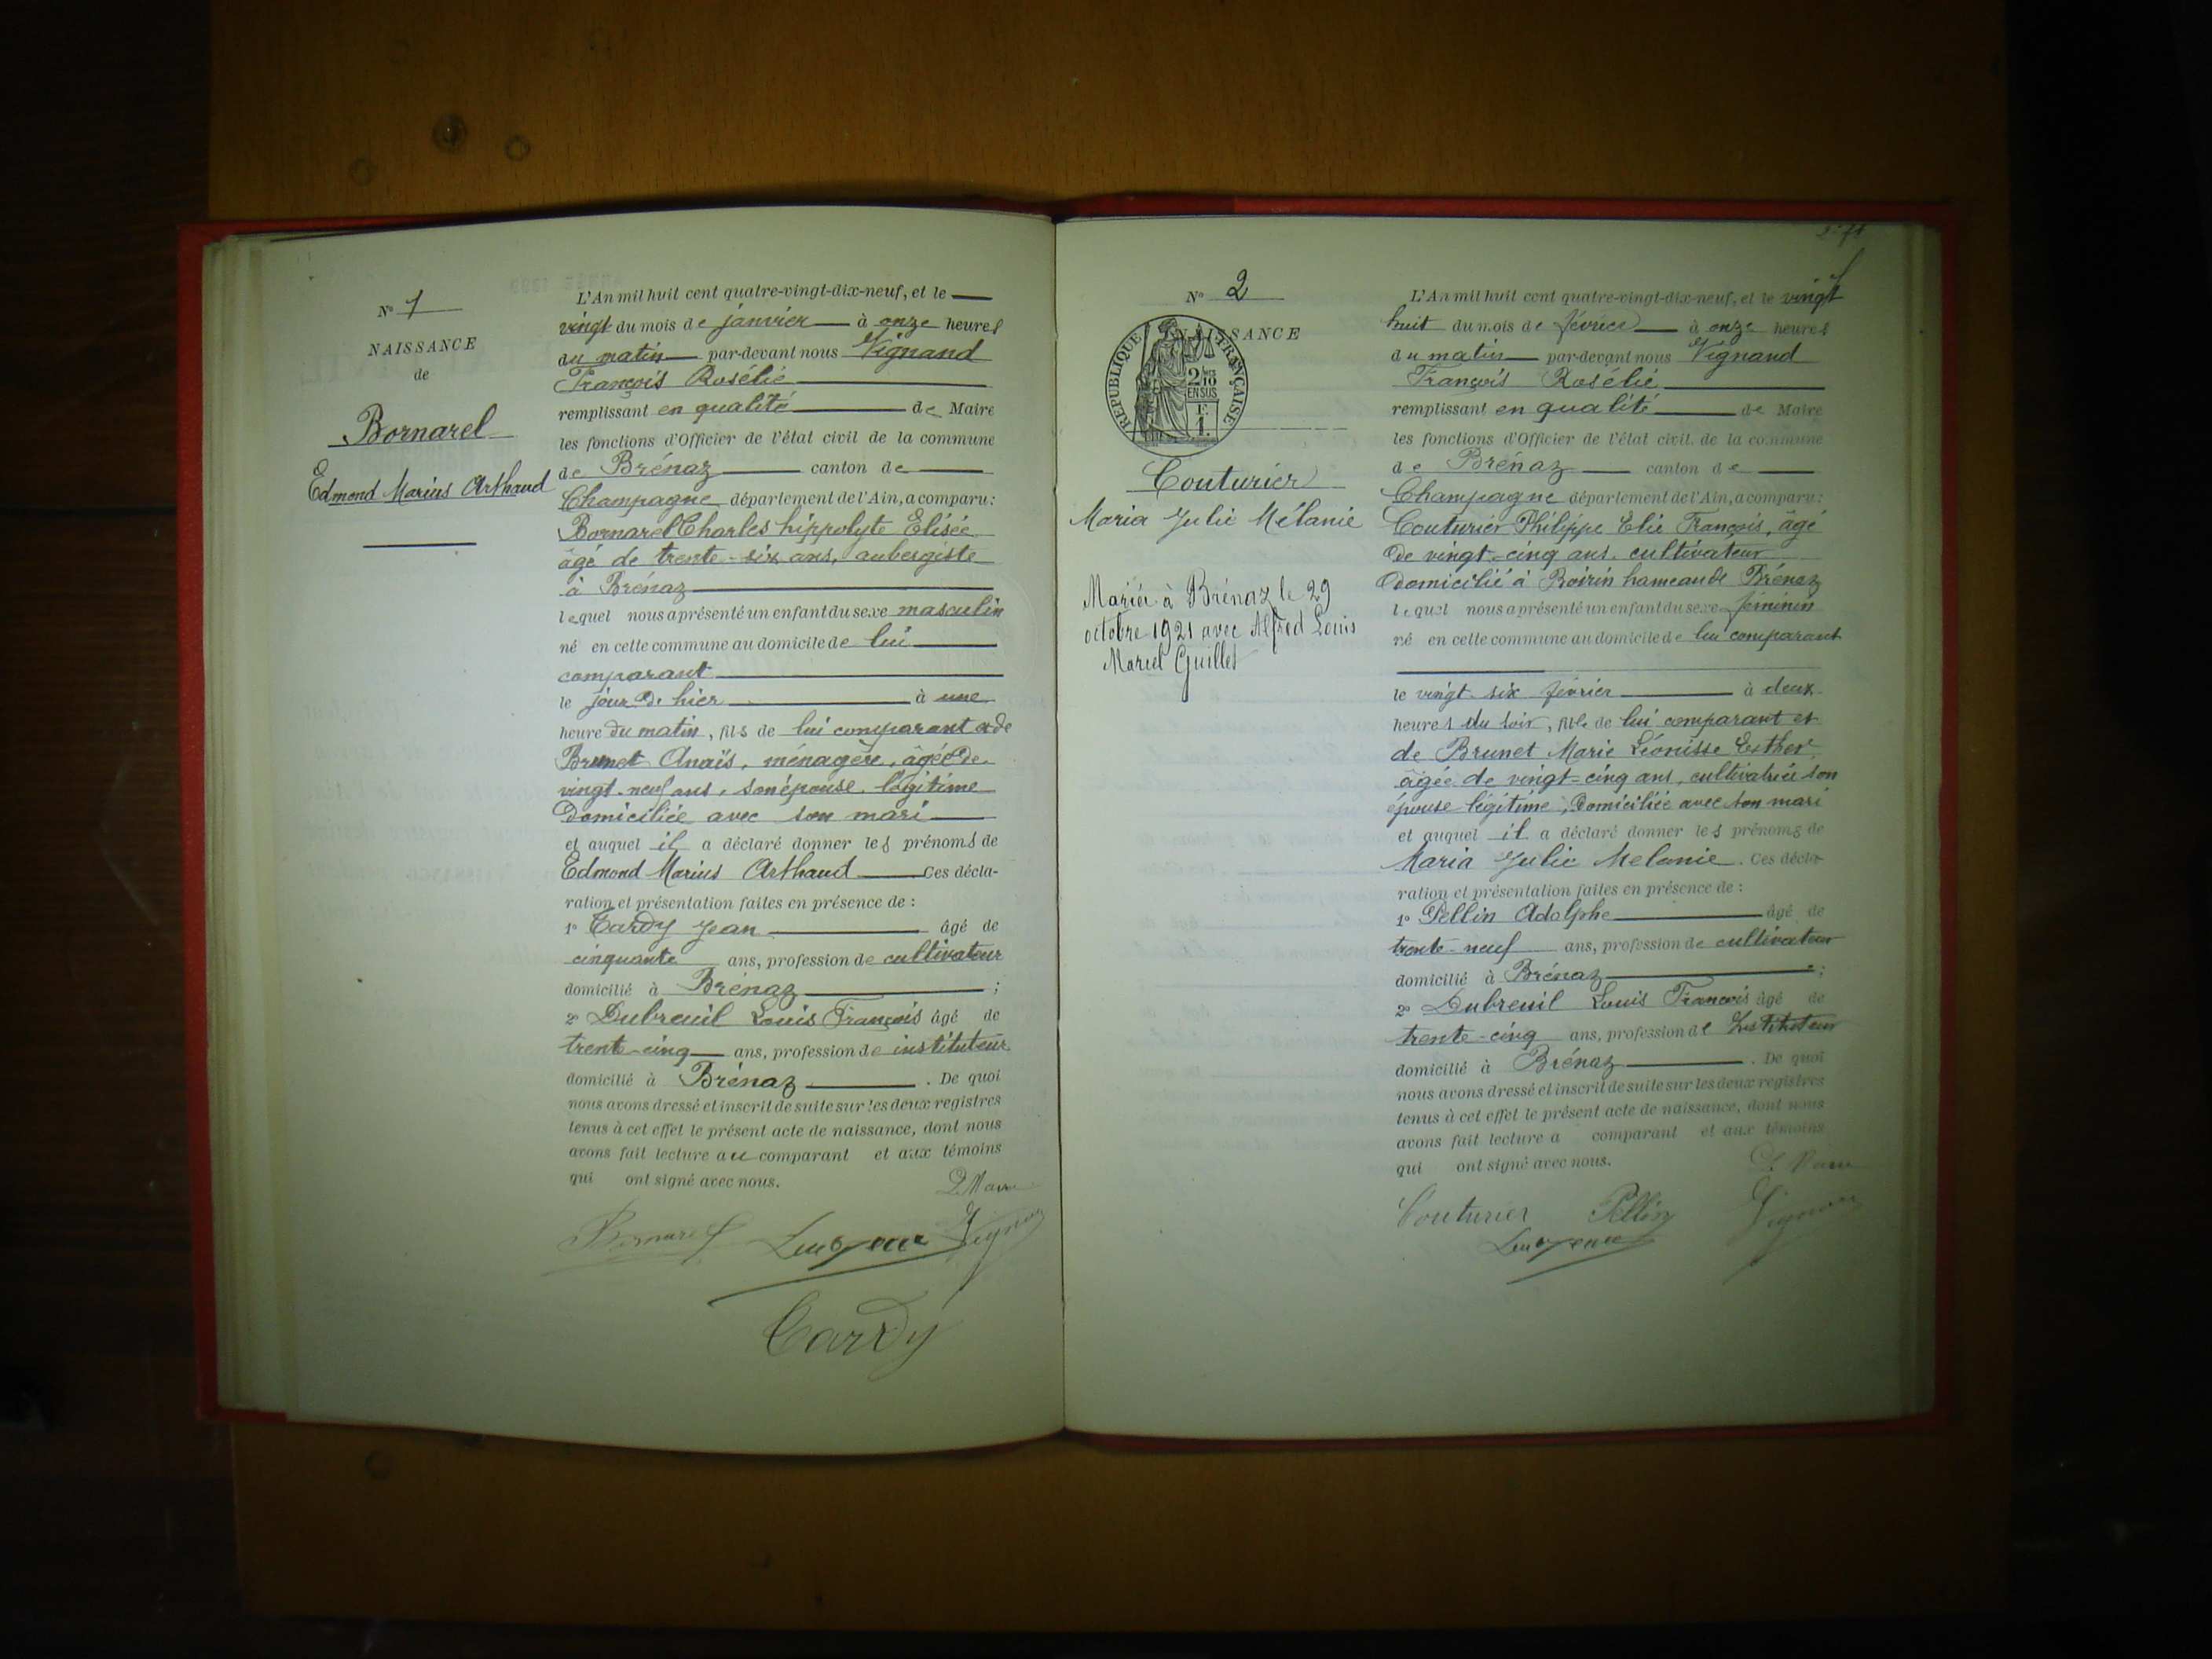 N° 1
NAISSANCE
de
Bornarel
Edmond Marius Arthaud
L'An mil huit cent quatre-vingt-dix-neuf, et le
vingt du mois de janvier à onze heures
du matin par-devant nous Vignand
François Rosélie
remplissant en qualité de Maire
les fonctions d'Officier de l'état civil de la commune
de Brénaz canton de
Champagne département de l'Ain, a comparu :
Bornarel Charles hippolyte Elisée
âgé de trente-six ans, aubergiste
à Brénaz
lequel nous a présenté un enfant du sexe masculin
né en cette commune au domicile de lui
comparant
le jour de hier à une
heure du matin, fils de lui comparant et de
Brunet Anaïs, ménagère, âgée de
vingt-neuf ans, son épouse légitime
domiciliée avec son mari
et auquel il a déclaré donner les prénoms de
Edmond Marius Arthaud Ces décla-
ration et présentation faites en présence de :
1° Tardy Jean âgé de
cinquante ans, profession de cultivateur
domicilié à Brénaz ;
2° Dubreuil Louis François âgé de
trente-cinq ans, profession de instituteur
domicilié à Brénaz . De quoi
nous avons dressé et inscrit de suite sur les deux registres
tenus à cet effet le présent acte de naissance, dont nous
avons fait lecture au comparant et aux témoins
qui ont signé avec nous.
Le Maire
Bornarel Vignand
Tardy
N° 2
NAISSANCE
RÉPUBLIQUE FRANÇAISE
2/10
EN SUS
F.
1.
Couturier
Maria Julie Mélanie
Mariée à Brénaz le 29
octobre 1921 avec Alfred Louis
Marcel Guillet
L'An mil huit cent quatre-vingt-dix-neuf, et le vingt
huit du mois de février à onze heures
du matin par-devant nous Vignand
François Rosélie
remplissant en qualité de Maire
les fonctions d'Officier de l'état civil de la commune
de Brénaz canton de
Champagne département de l'Ain, a comparu :
Couturier Philippe Elie François, âgé
de vingt-cinq ans, cultivateur
domicilié à hameau de Brénaz
lequel nous a présenté un enfant du sexe féminin
né en cette commune au domicile de lui comparant
le vingt-six février à deux
heures du soir, fille de lui comparant et
de Brunet Marie Léonisse Esther
âgée de vingt-cinq ans, cultivatrice son
épouse légitime, domiciliée avec son mari
et auquel il a déclaré donner les prénoms de
Maria Julie Melanie. Ces décla-
ration et présentation faites en présence de :
1° Pellin Adolphe âgé de
trente-neuf ans, profession de cultivateur
domicilié à Brénaz ;
2° Dubreuil Louis François âgé de
trente-cinq ans, profession de Instituteur
domicilié à Brénaz . De quoi
nous avons dressé et inscrit de suite sur les deux registres
tenus à cet effet le présent acte de naissance, dont nous
avons fait lecture a comparant et aux témoins
qui ont signé avec nous.
Le Maire
Couturier Pellin Vignand